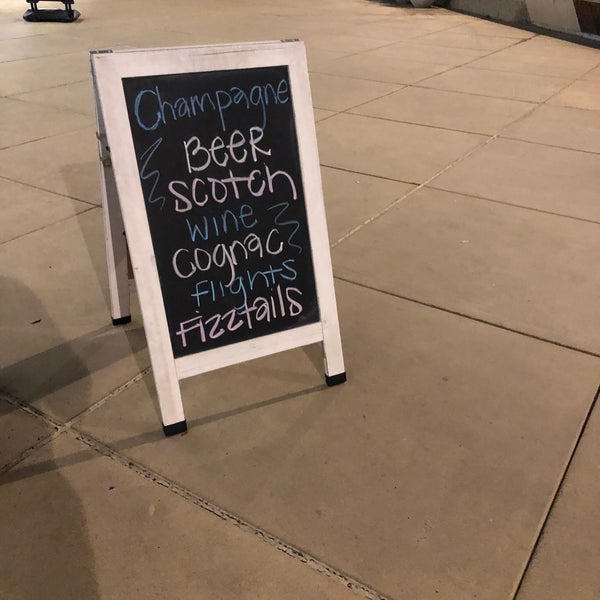 Champagne
BEER
SCOTCH
WINE
COgNAC
flights
fizztails